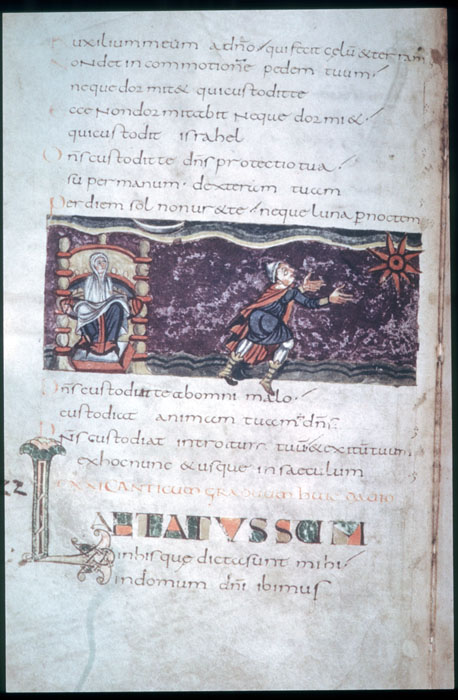 Auxilium meum a dño qui fecit celū & terram
Non det in commotionē pedem tuum
neque dormit& qui custodit te
ecce Non dormitabit Neque dormi&
qui custodit israhel
Dñs custodit te dñs protectio tua
super manum dexteram tuam
Per diem sol non ur& te neque luna p noctem
Dñs custodit te ab omni malo
custodiat animam tuam dñs
Dñs custodiat introitū tuū & exitū tuum
ex hoc nunc & usque in saeculum
CXXI CANTICUM GRADUUM DAVID
in his que dicta sunt mihi
in domum dñi ibimus